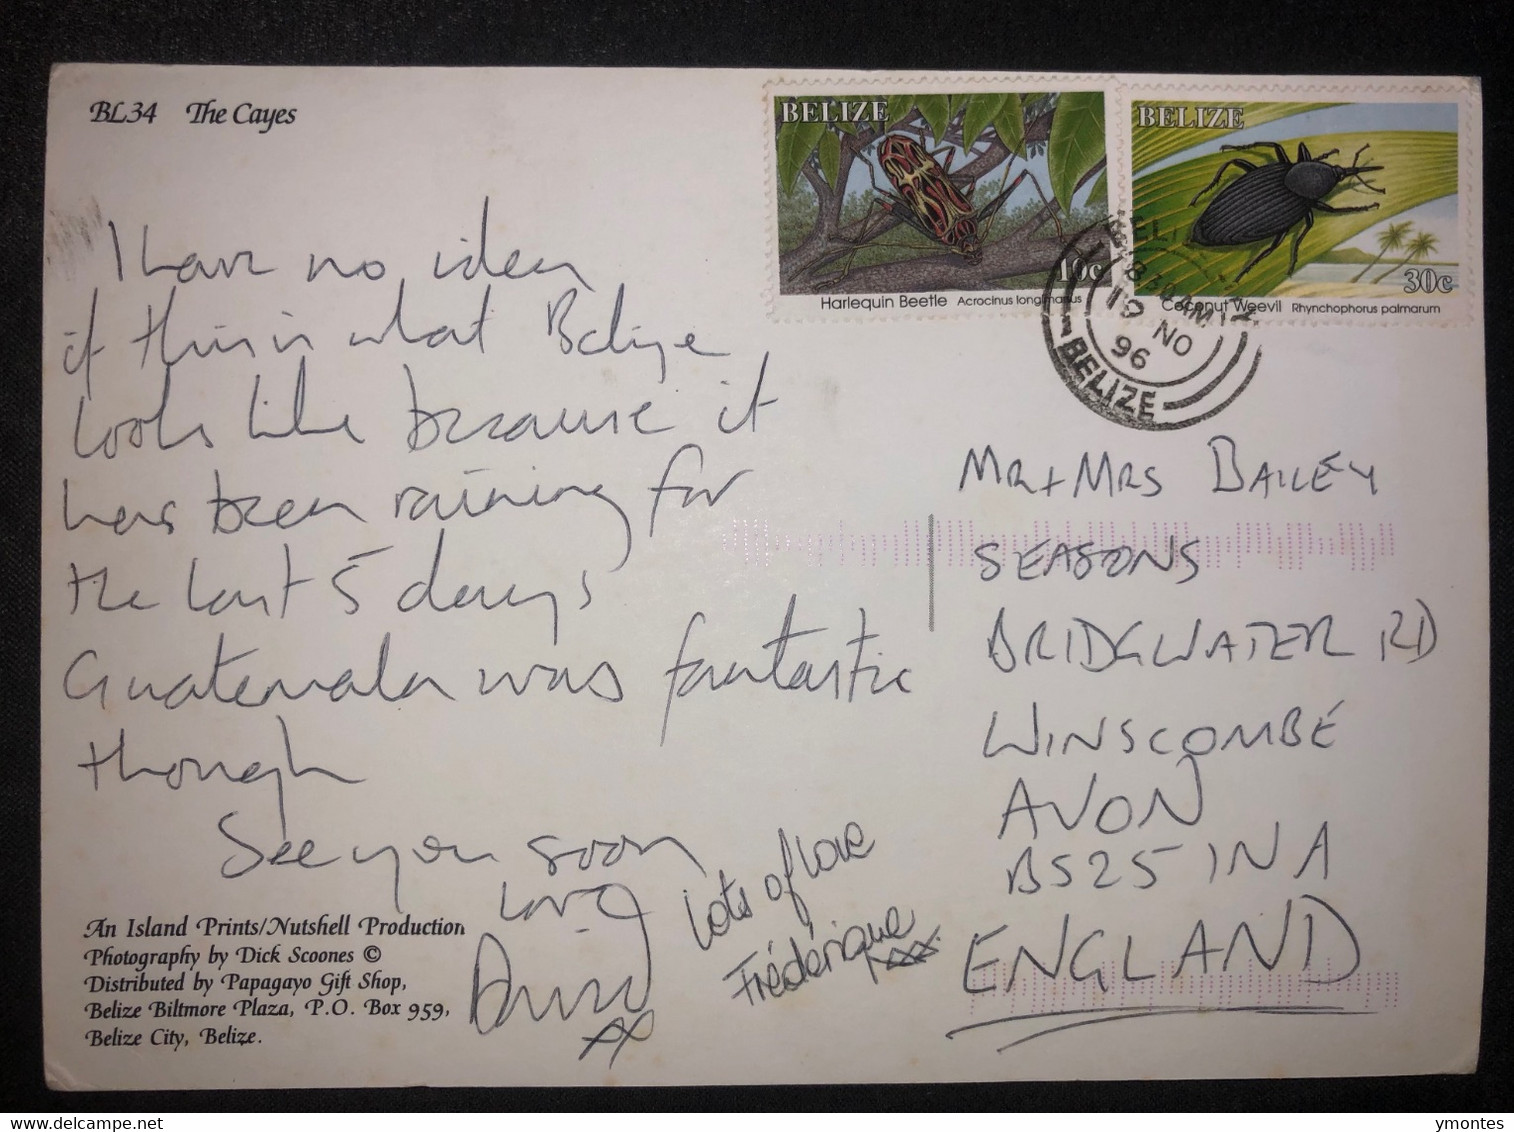 BL34 The Cayes
BELIZE
10c
Harlequin Beetle Acrocinus longimanus
BELIZE
30c
Coconut Weevil Rhynchophorus palmarum
19 NO
96
BELIZE
I have no idea
if this is what Belize
looks like because it
has been raining for
the last 5 days
Guatemala was fantastic
though
See you soon
love
David
xx
Lots of love
Frédérique
xxx
MR + MRS BAILEY
SEASONS
BRIDGWATER RD
WINSCOMBE
AVON
BS25 1NA
ENGLAND
An Island Prints/Nutshell Production
Photography by Dick Scoones ©
Distributed by Papagayo Gift Shop,
Belize Biltmore Plaza, P.O. Box 959,
Belize City, Belize.
ymontes